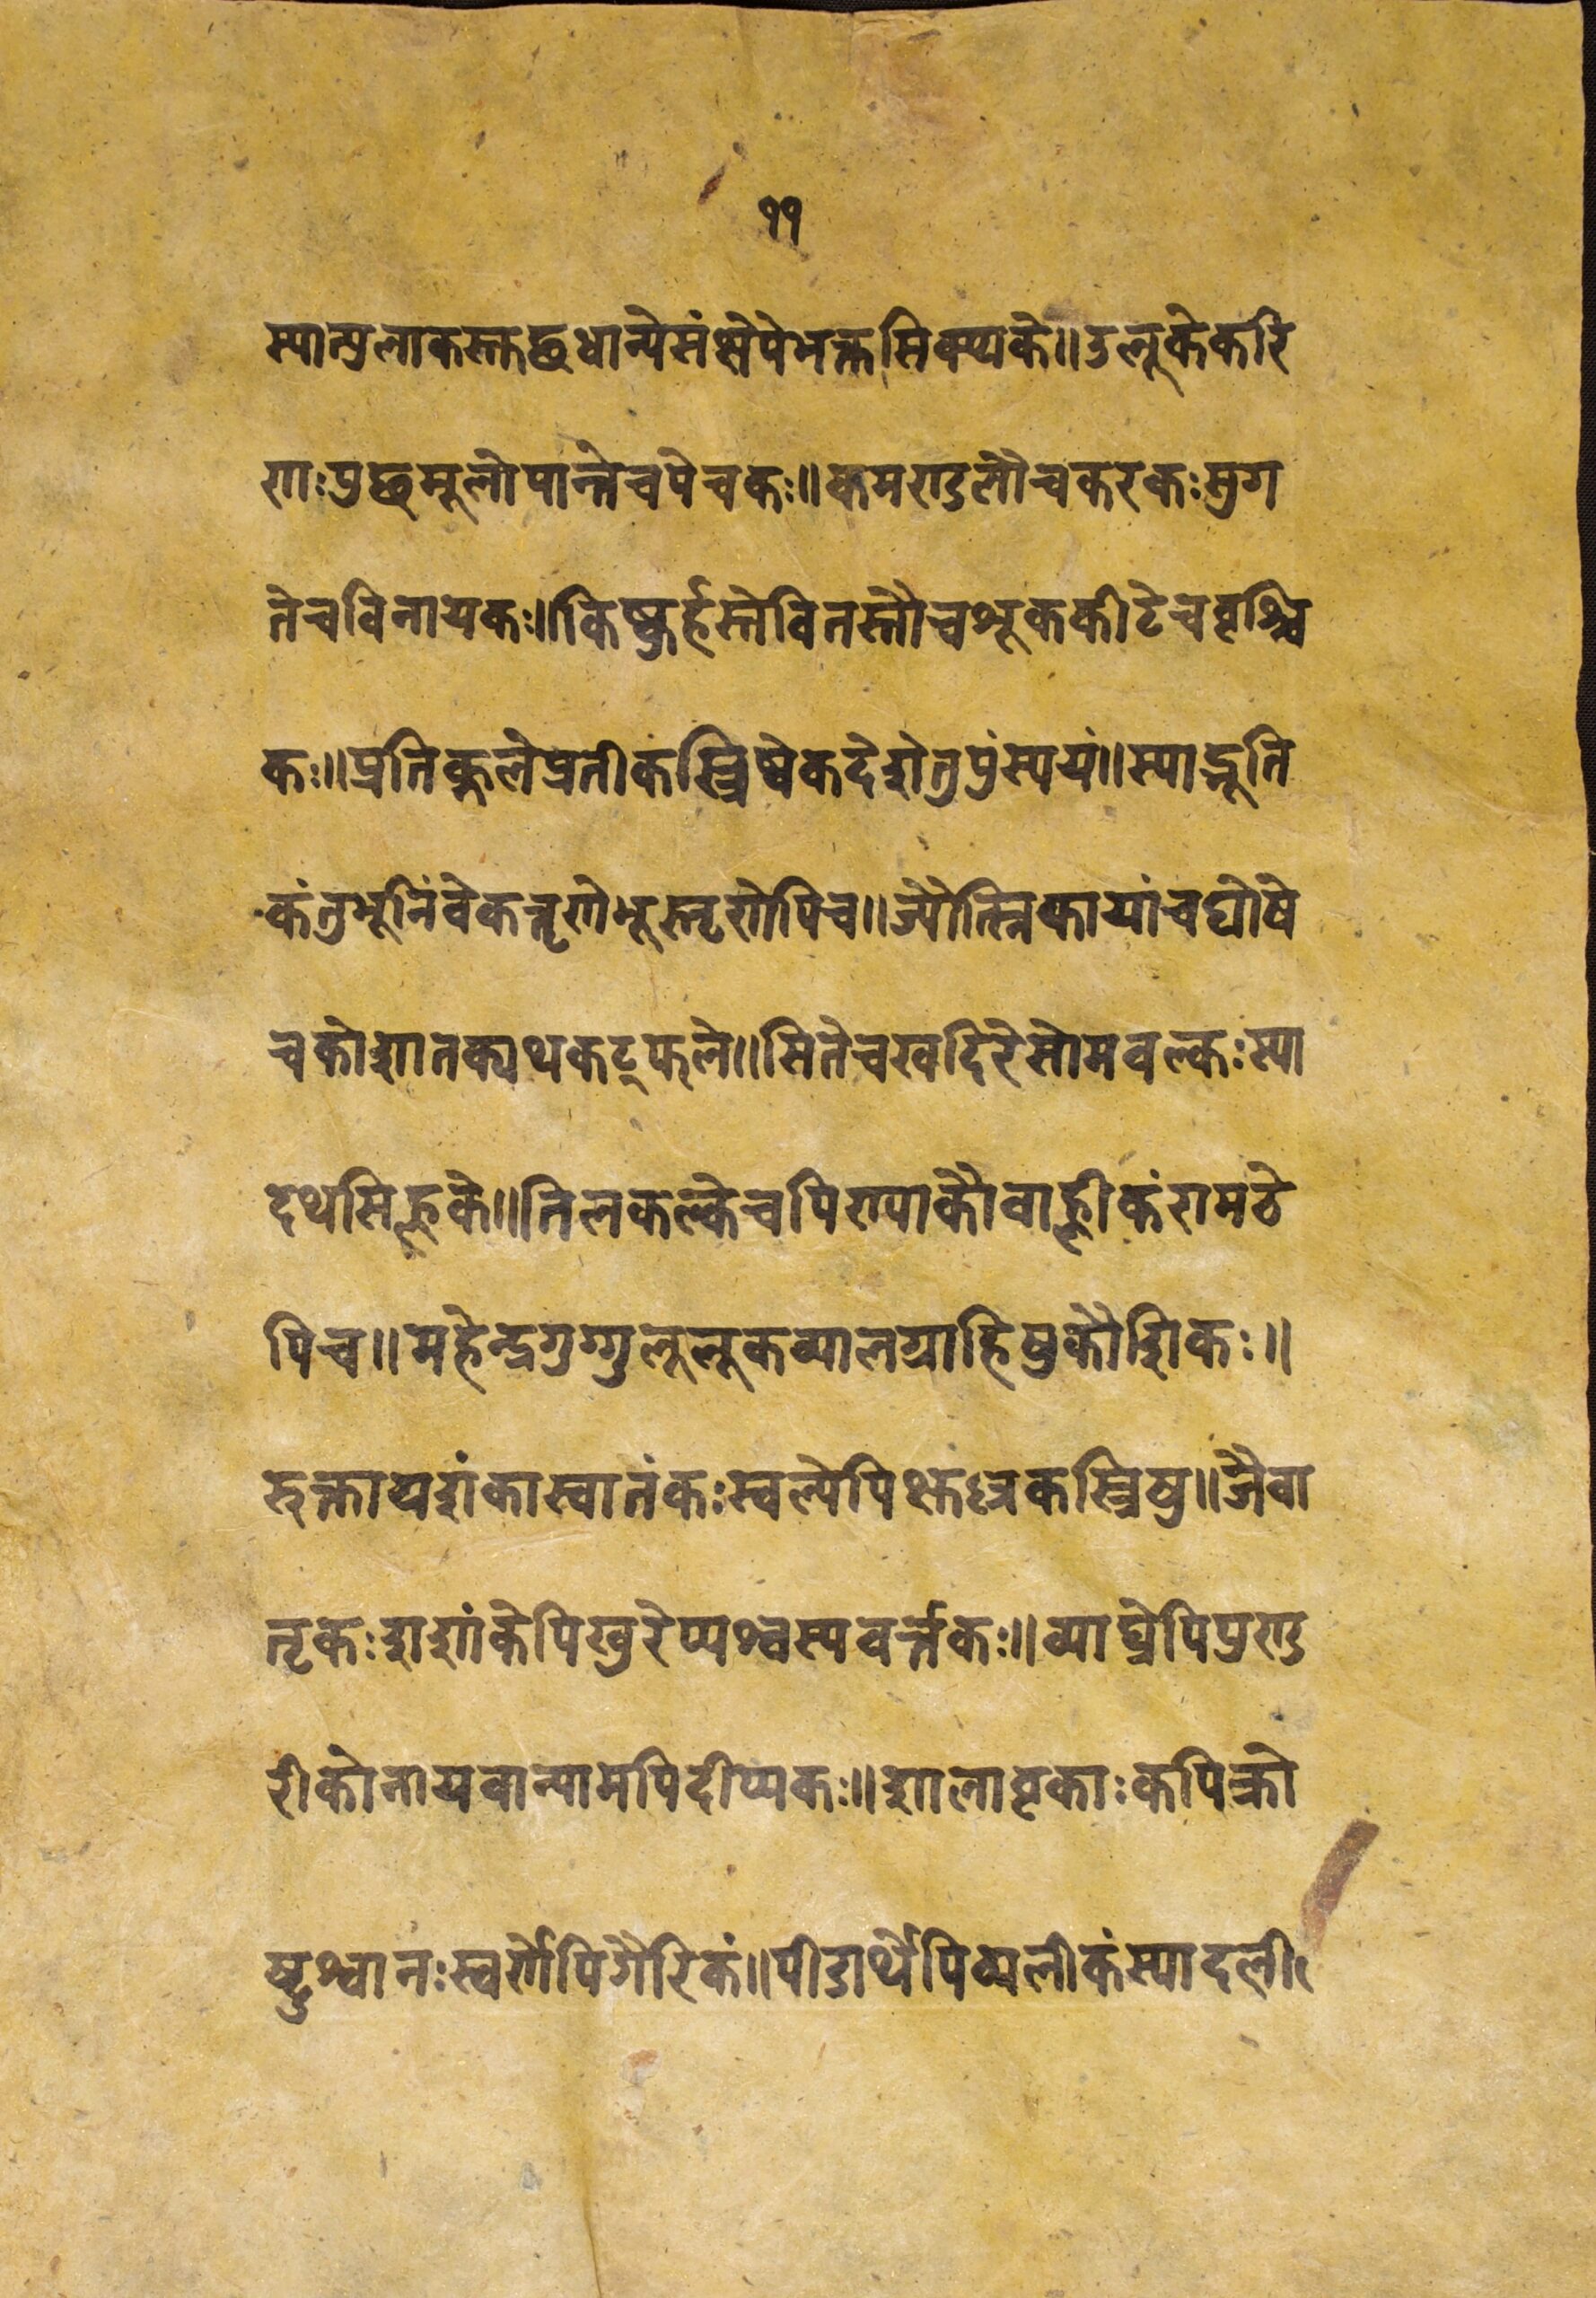 ११
स्यात्पुलाकस्तुछधान्येसंक्षेपेभक्तसिक्थके॥उलूकेकरि
णःपुछमूलोपान्तेचपेचकः॥कमण्डलौचकरकःसुग
तेचविनायकः॥किष्कुर्हस्तेवितस्तौचशूककीटेचवृश्चि
कः॥प्रतिकूलेप्रतीकस्त्रिष्वेकदेशेतुपुंस्ययं॥स्याद्भूति
कंतुभूनिंवेकत्तृणेभूस्तृणेपिच॥ज्योत्स्निकायांचघोषे
चकोशातक्यथकट्फले॥सितेचखदिरेसोमवल्कःस्या
दथसिह्लके॥तिलकल्केचपिण्याकौवाह्लीकंरामठे
पिच॥महेन्द्रगुग्गुलूलूकव्यालग्राहिषुकौशिकः॥
रुक्तापशंकास्वातंकःस्वल्पेपिक्षुल्लकस्त्रिषु॥जैवा
तृकःशशांकेपिखुरेप्यश्वस्यवर्त्तकः॥व्याघ्रेपिपुण्ड
रीकोनायवान्यामपिदीप्यकः॥शालावृकाःकपिक्रो
ष्टुश्वानःस्वर्णेपिगैरिकं॥पीडार्थेपिव्यलीकंस्यादली